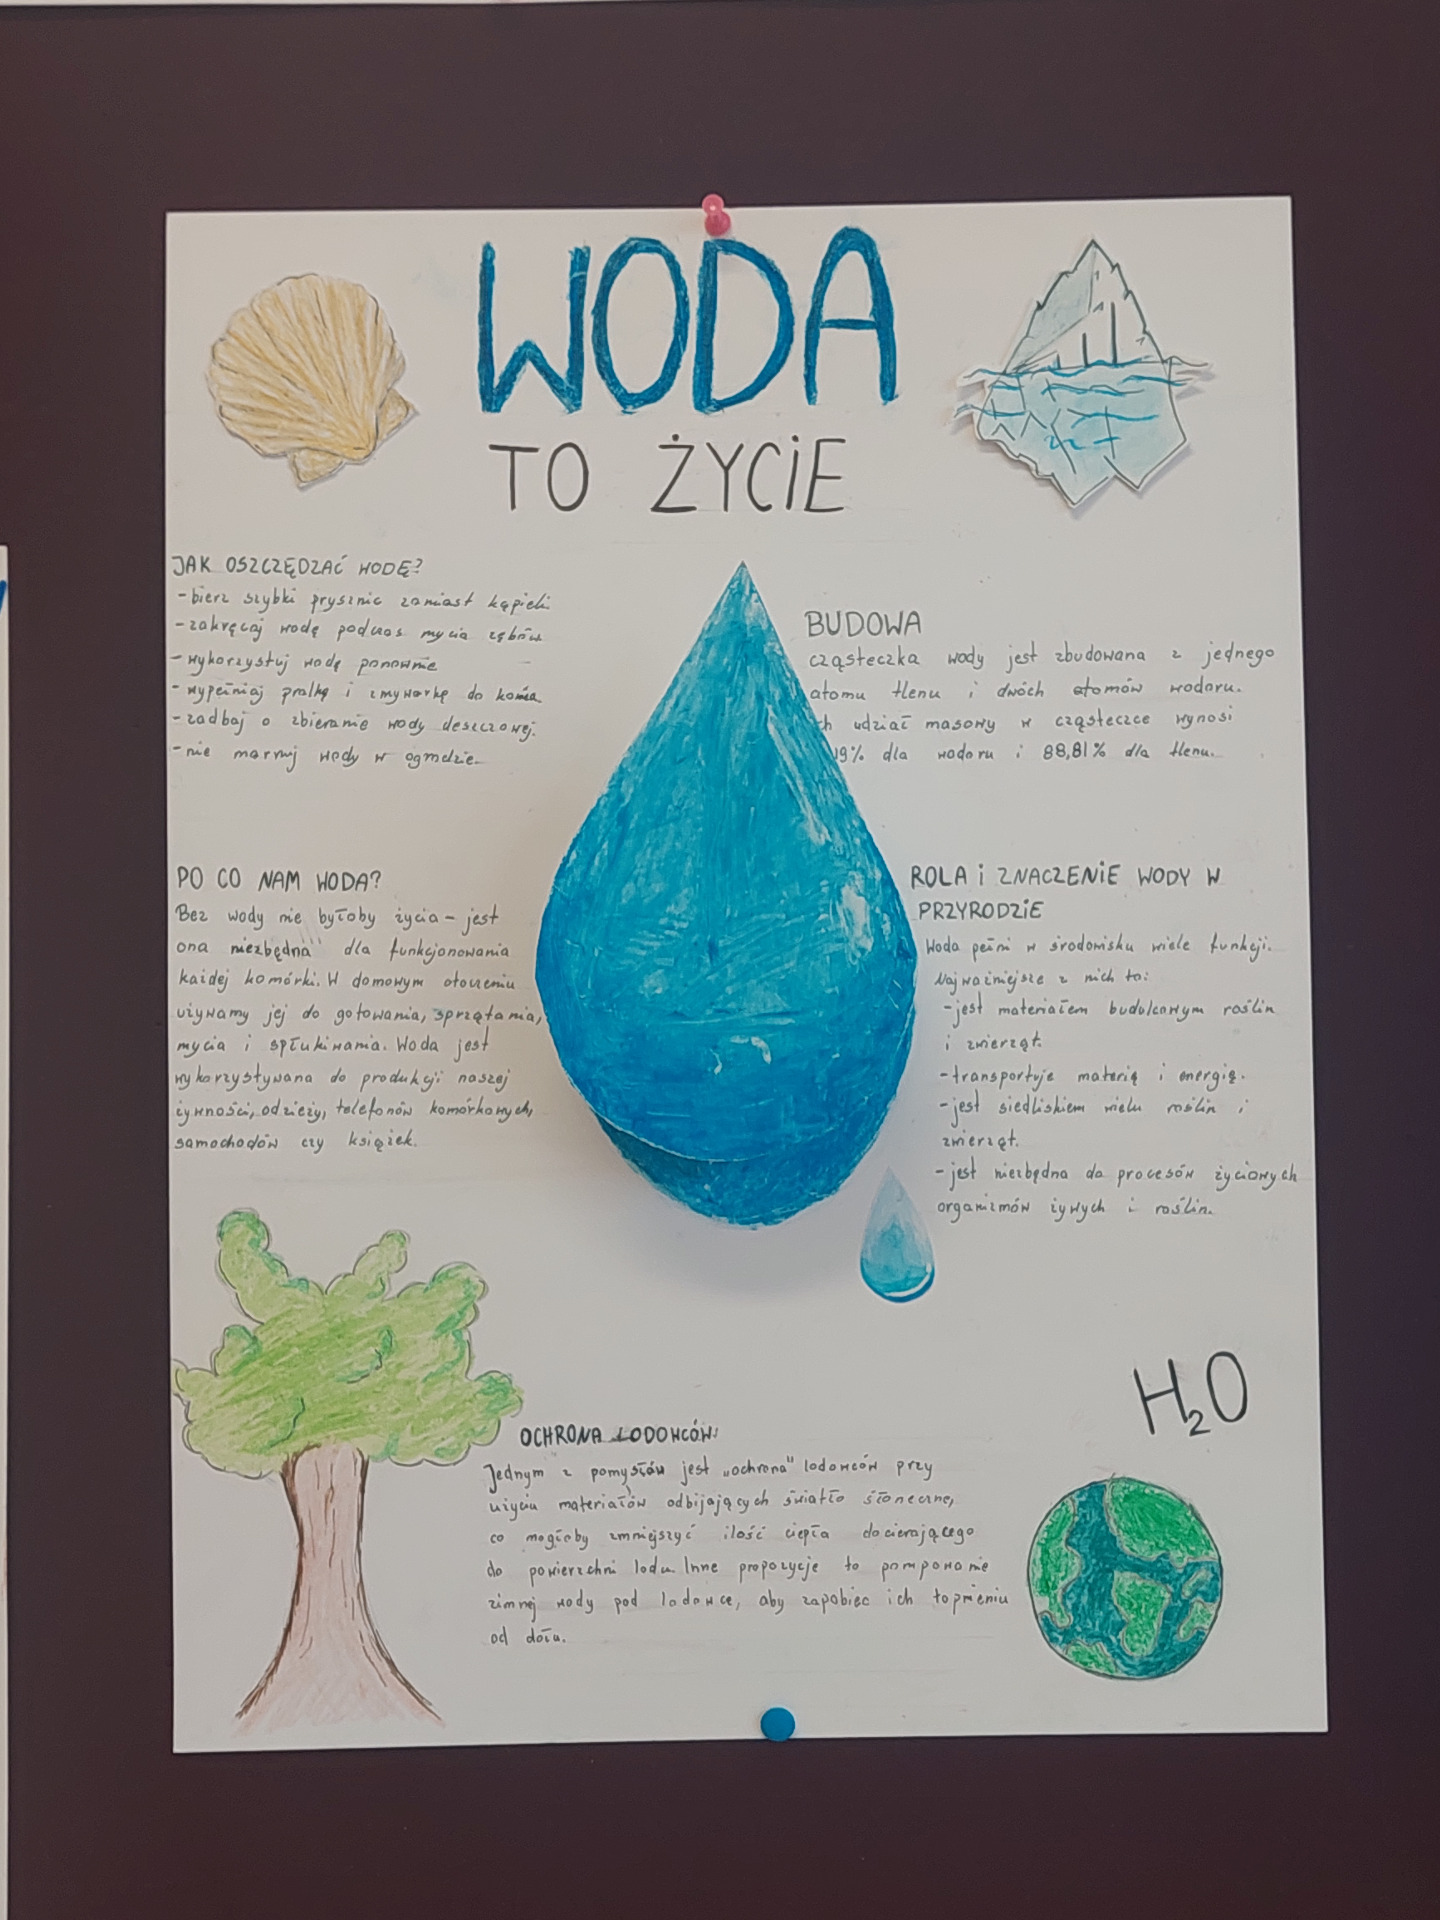 WODA
TO ŻYCIE
JAK OSZCZĘDZAĆ WODĘ?
- bierz szybki prysznic zamiast kąpieli
- zakręcaj wodę podczas mycia zębów
- wykorzystuj wodę ponownie
- wypełniaj pralkę i zmywarkę do końca
- zadbaj o zbieranie wody deszczowej.
- nie marnuj wody w ogrodzie.
BUDOWA
cząsteczka wody jest zbudowana z jednego
atomu tlenu i dwóch atomów wodoru.
ch udział masowy w cząsteczce wynosi
19% dla wodoru i 88,81% dla tlenu.
PO CO NAM WODA?
Bez wody nie byłoby życia - jest
ona niezbędna dla funkcjonowania
każdej komórki. W domowym otoczeniu
używamy jej do gotowania, sprzątania,
mycia i spłukiwania. Woda jest
wykorzystywana do produkcji naszej
żywności, odzieży, telefonów komórkowych,
samochodów czy książek.
ROLA i ZNACZENIE WODY W
PRZYRODZIE
Woda pełni w środowisku wiele funkcji.
Najważniejsze z nich to:
- jest materiałem budulcowym roślin
i zwierząt.
- transportuje materię i energię.
- jest siedliskiem wielu roślin i
zwierząt.
- jest niezbędna do procesów życiowych
organizmów żywych i roślin.
H₂O
OCHRONA LODOWCÓW
Jednym z pomysłów jest „ochrona" lodowców przy
użyciu materiałów odbijających światło słoneczne,
co mogłoby zmniejszyć ilość ciepła docierającego
do powierzchni lodu. Inne propozycje to pompowanie
zimnej wody pod lodowce, aby zapobiec ich topnieniu
od dołu.